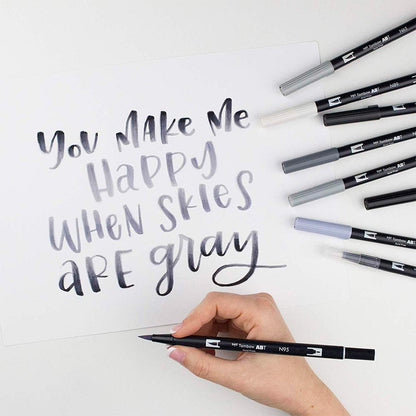 You Make Me
Happy
When Skies
Are gray
Tombow ABT
N89 Tombow ABT
Tombow ABT
Tombow ABT
Tombow ABT
Tombow ABT N95